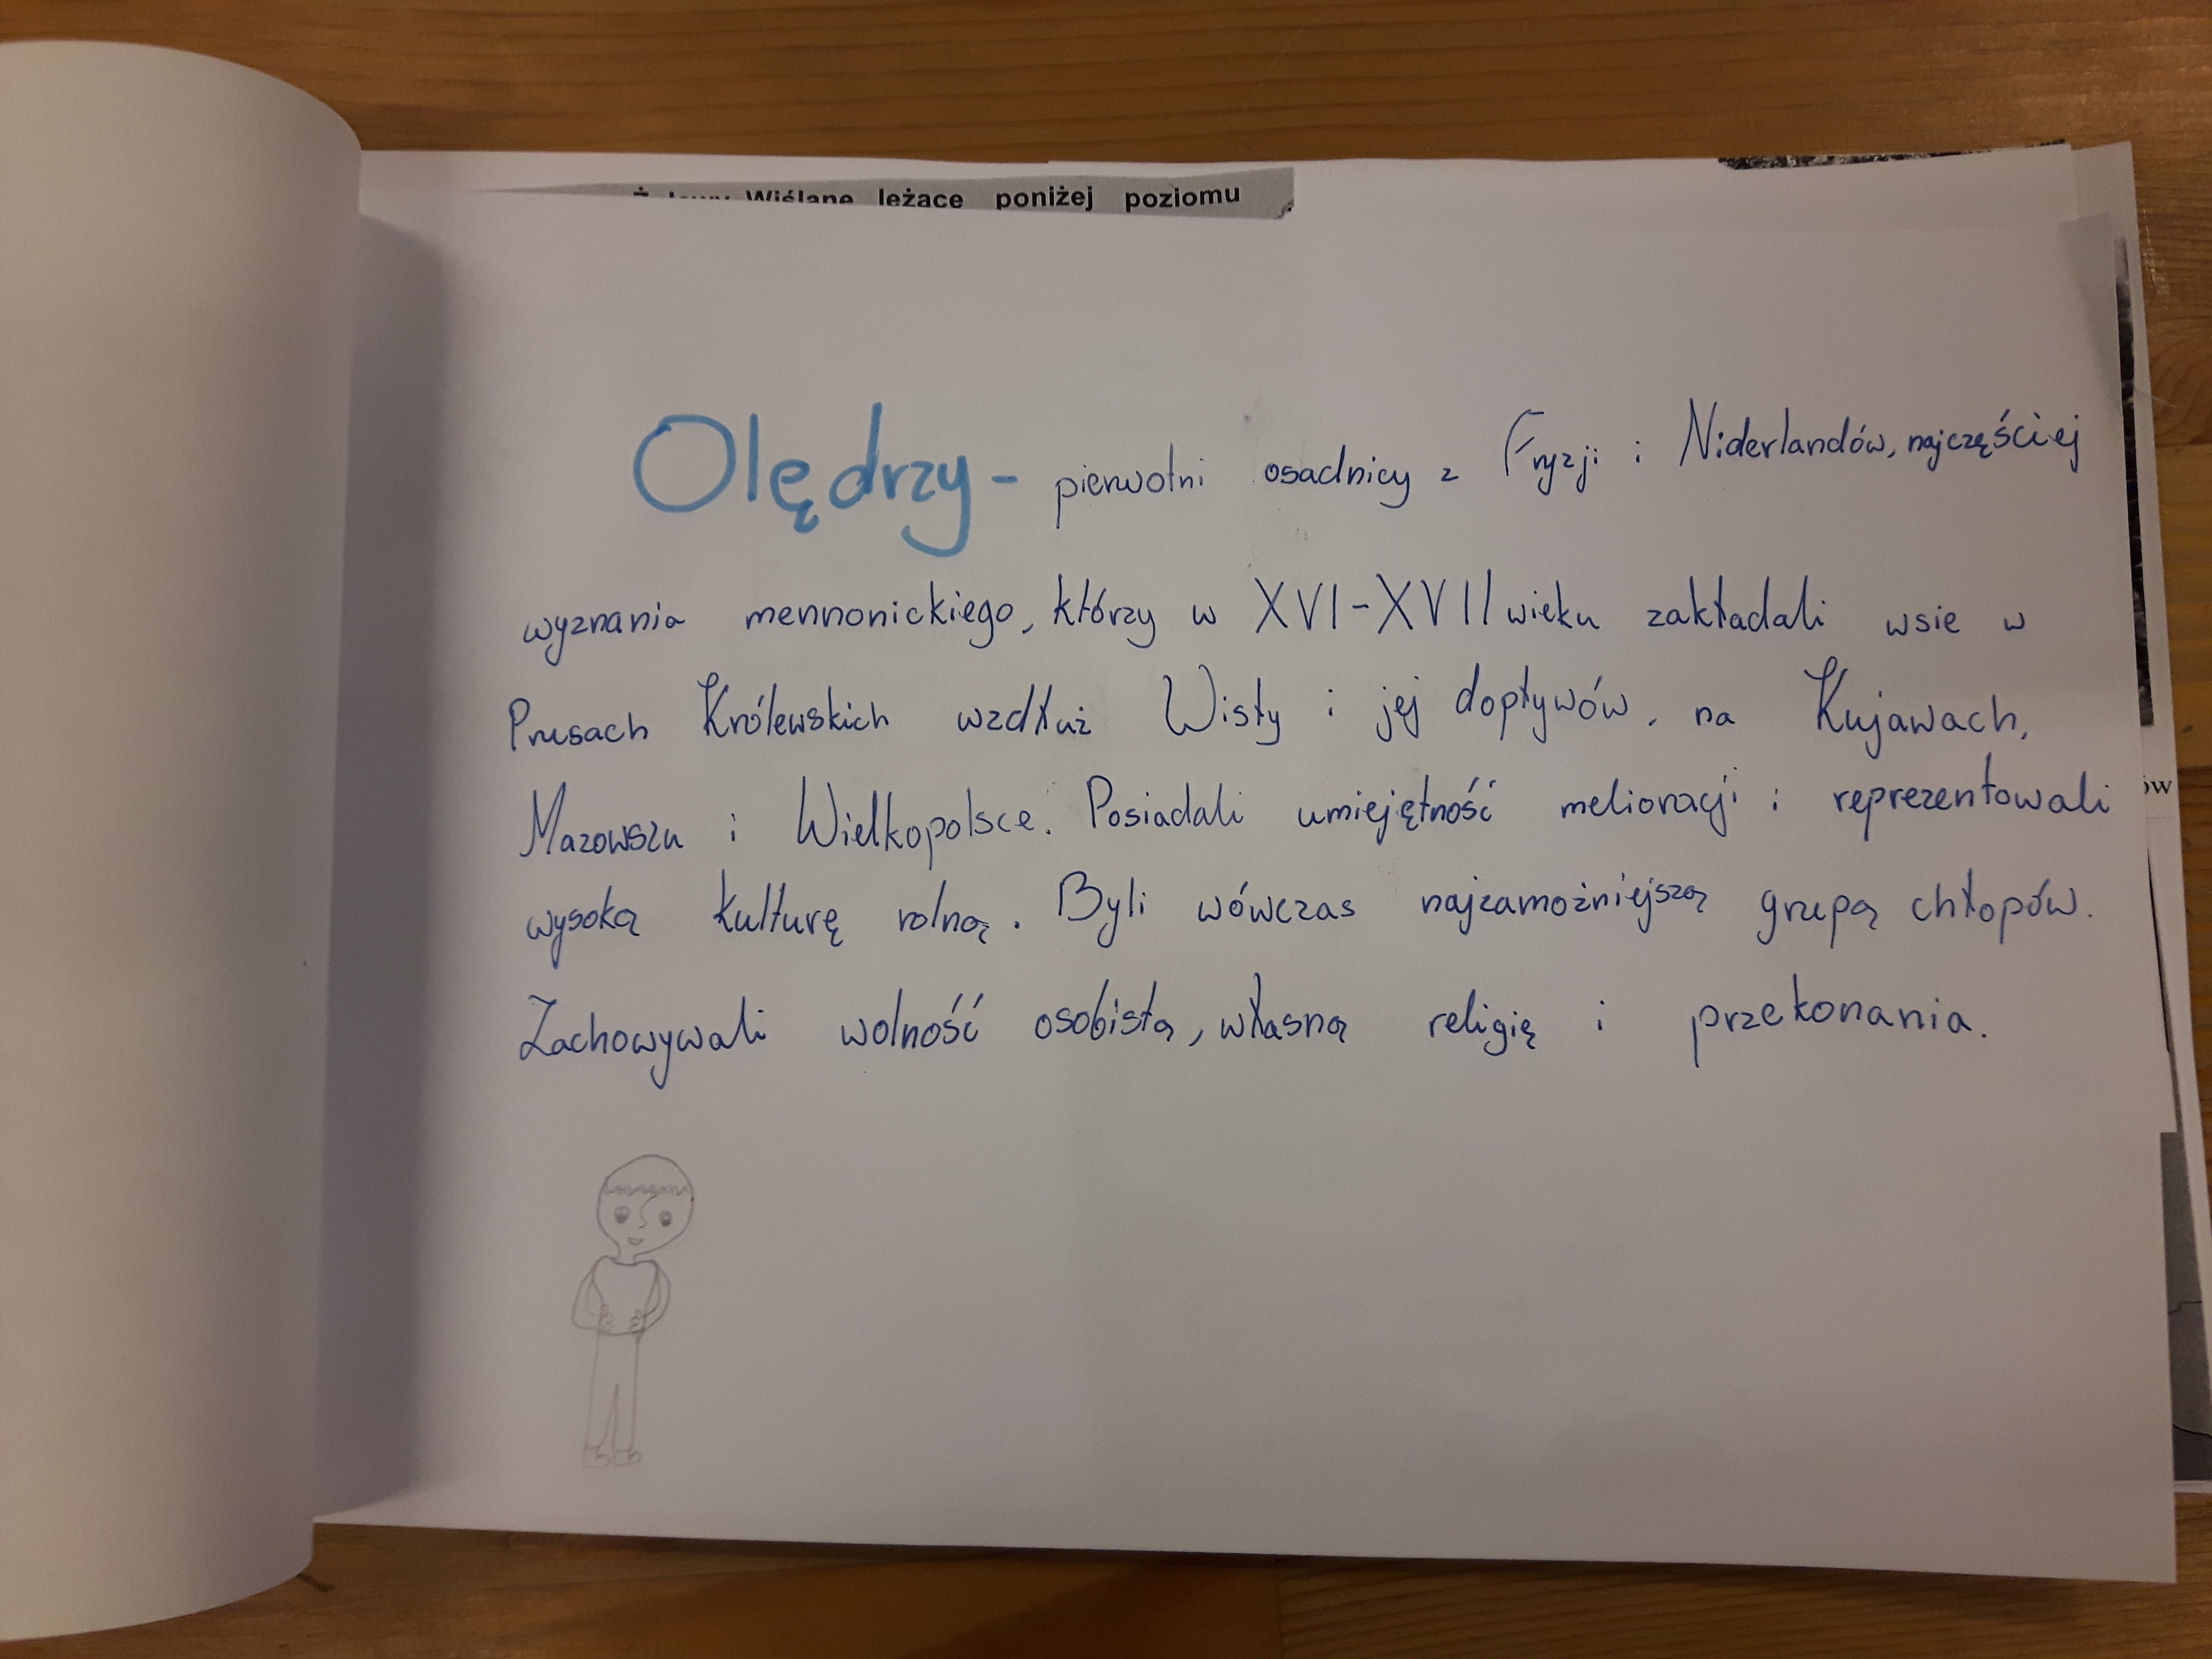 Wiślane leżące poniżej poziomu
Olędrzy - pierwotni osadnicy z Fryzji i Niderlandów, najczęściej
wyznania mennonickiego, którzy w XVI-XVII wieku zakładali wsie w
Prusach Królewskich wzdłuż Wisły i jej dopływów, na Kujawach,
Mazowszu i Wielkopolsce. Posiadali umiejętność melioracji i reprezentowali
wysoką kulturę rolną. Byli wówczas najzamożniejszą grupą chłopów.
Zachowywali wolność osobistą, własną religię i przekonania.